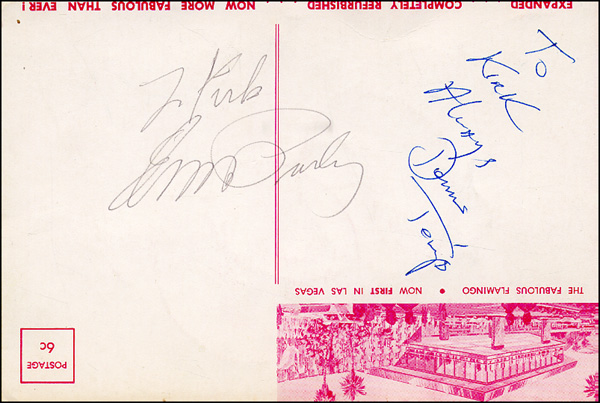 EXPANDED COMPLETELY REFURBISHED NOW MORE FABULOUS THAN EVER !
To Kirk
Elvis Presley
TO
KIRK
Always
THE FABULOUS FLAMINGO • NOW FIRST IN LAS VEGAS
POSTAGE
6c